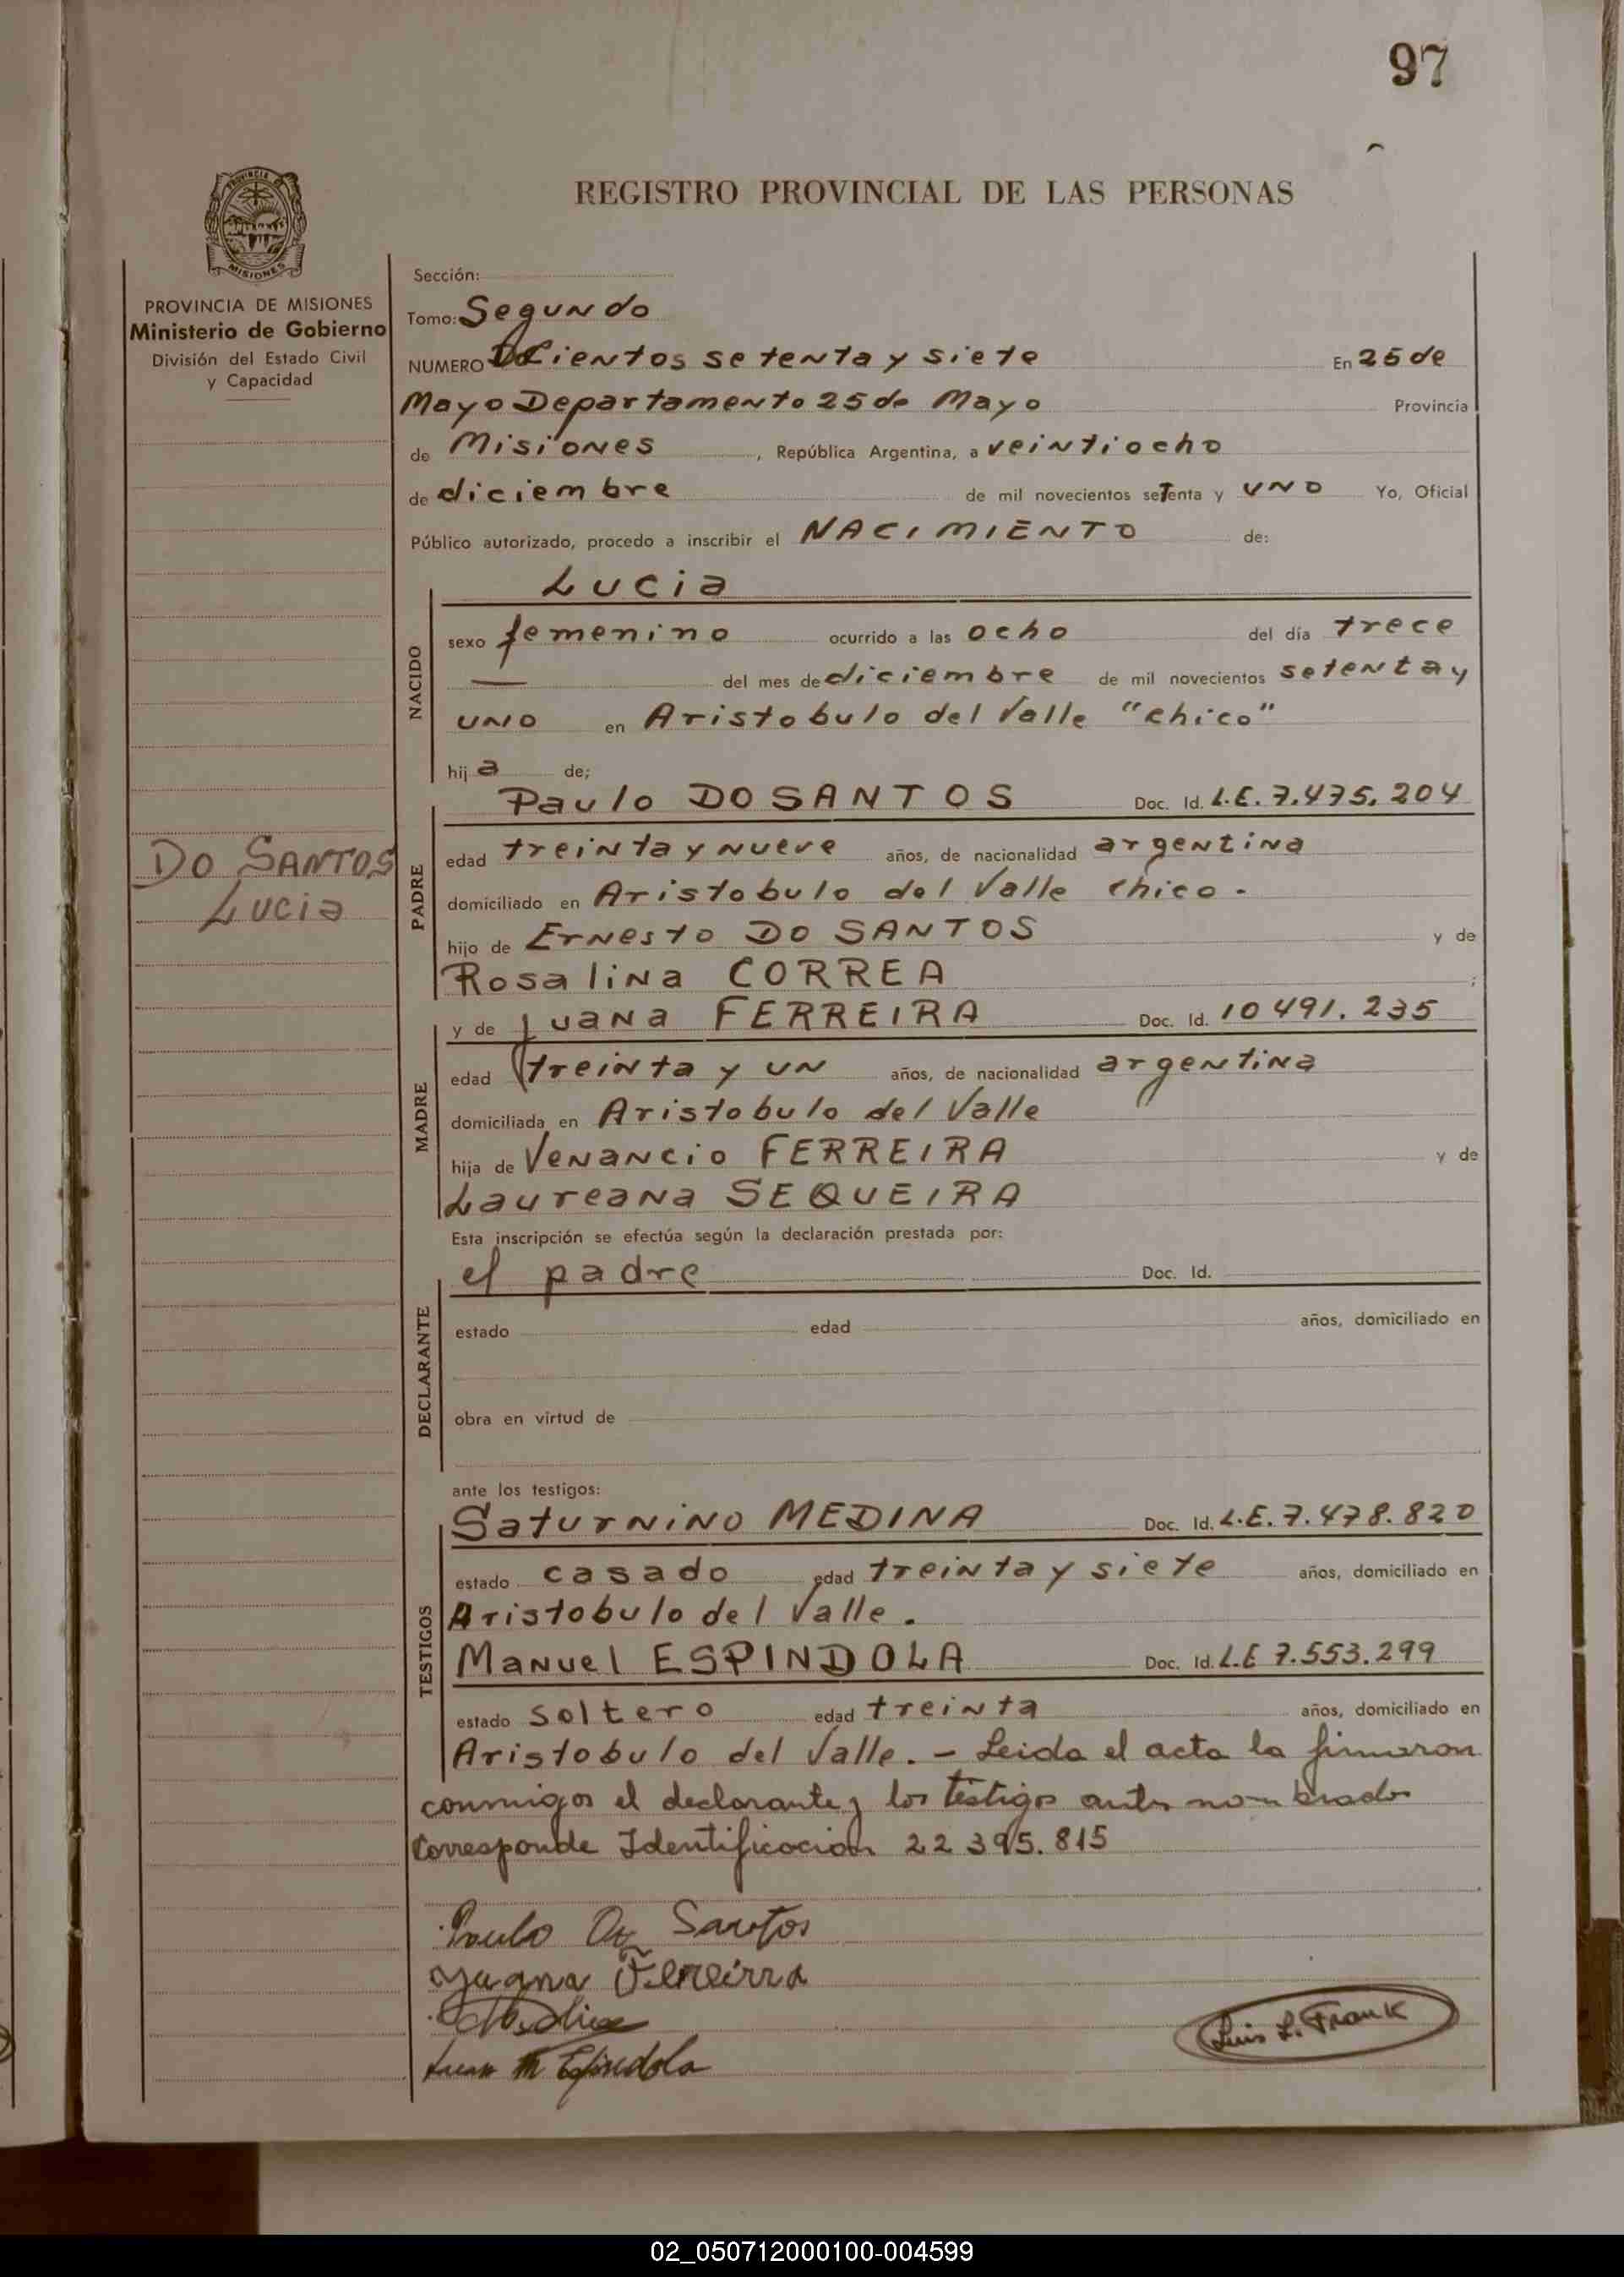 97
REGISTRO PROVINCIAL DE LAS PERSONAS
PROVINCIA DE
MISIONES
PROVINCIA DE MISIONES
Ministerio de Gobierno
División del Estado Civil
y Capacidad
DO SANTOS
Lucia
Sección:
Tomo: Segundo
NUMERO Docientos setenta y siete En 25 de
Mayo Departamento 25 de Mayo Provincia
de Misiones, República Argentina, a veintiocho
de diciembre de mil novecientos setenta y uno Yo, Oficial
Público autorizado, procedo a inscribir el NACIMIENTO de:
NACIDO
Lucia
sexo femenino ocurrido a las ocho del día trece
— del mes de diciembre de mil novecientos setenta y
uno en Aristobulo del Valle "chico"
hija de;
PADRE
Paulo DO SANTOS Doc. Id. L.E. 7.475.204
edad treinta y nueve años, de nacionalidad argentina
domiciliado en Aristobulo del Valle chico.
hijo de Ernesto DO SANTOS y de
Rosalina CORREA ;
MADRE
y de Juana FERREIRA Doc. Id. 10 491.235
edad treinta y un años, de nacionalidad argentina
domiciliada en Aristobulo del Valle
hija de Venancio FERREIRA y de
Laureana SEQUEIRA
Esta inscripción se efectúa según la declaración prestada por:
DECLARANTE
el padre Doc. Id.
estado edad años, domiciliado en
obra en virtud de
ante los testigos:
TESTIGOS
Saturnino MEDINA Doc. Id. L.E. 7.478.820
estado casado edad treinta y siete años, domiciliado en
Aristobulo del Valle.
Manuel ESPINDOLA Doc. Id. L.E 7.553.299
estado soltero edad treinta años, domiciliado en
Aristobulo del Valle. - Leida el acta la firmaron
conmigo el declarante y los testigos antes nombrados
Corresponde Identificacion 22 395.815
Paulo Do Santos
Juana Ferreirra
Medina
Juan M Espindola
Luis L. Frank
02_050712000100-004599